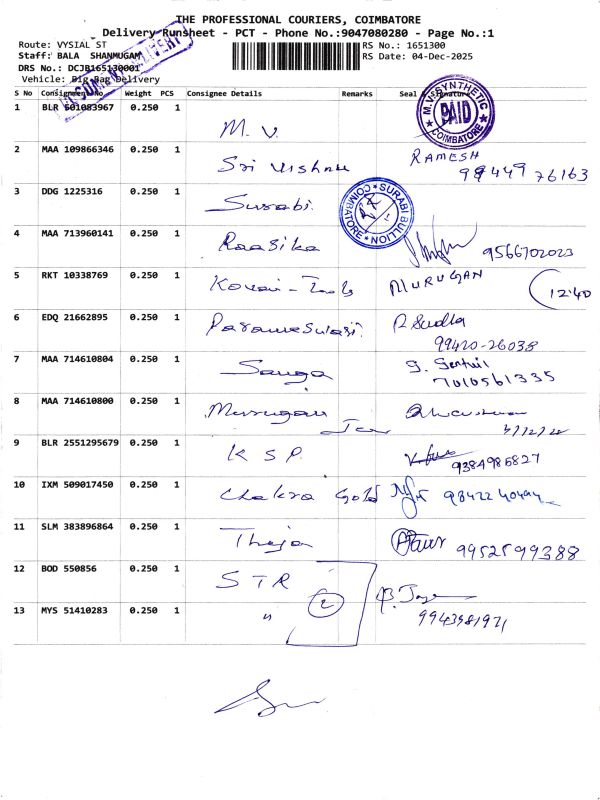 THE PROFESSIONAL COURIERS, COIMBATORE
Delivery Runsheet - PCT - Phone No.:9047080280 - Page No.:1
Route: VYSIAL ST RS No.: 1651300
Staff: BALA SHANMUGAM RS Date: 04-Dec-2025
DRS No.: DCJB165130001
Vehicle: Big Bag Delivery
S No Consignment No Weight PCS Consignee Details Remarks Seal & Signature
M.V. SYNTHETIC
PAID
COIMBATORE
1 BLR 601083967 0.250 1 M. V.
2 MAA 109866346 0.250 1 Sri Vishnu RAMESH
98449 76163
3 DDG 1225316 0.250 1 Surabi
SURABI BULLION
COIMBATORE
4 MAA 713960141 0.250 1 Raasika 9566702023
5 RKT 10338769 0.250 1 Kovai - Tools MURUGAN 12.40
6 EDQ 21662895 0.250 1 Parameswari P Sudha
99420-26038
7 MAA 714610804 0.250 1 Sanga G. Senthil
7010561335
8 MAA 714610800 0.250 1 Murugan
9 BLR 2551295679 0.250 1 K S P. 9384986827
10 IXM 509017450 0.250 1 Chakra Gold 9842240494
11 SLM 383896864 0.250 1 Theja 9952599388
12 BOD 550856 0.250 1 STR 2
13 MYS 51410283 0.250 1 " 9943981971